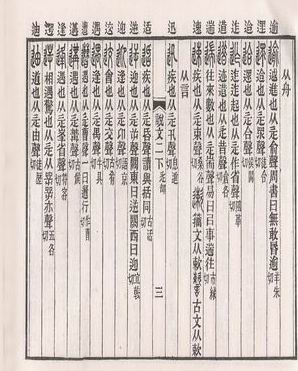 从舟
逾 逾 𨒋進也从辵俞聲周書曰無敢昏逾羊朱切
遝 遝 迨也从辵眔聲徒合切
迨 迨 遝也从辵合聲矦閤切
迮 迮 迮起也从辵作省聲阻革切
逪 逪 迹逪也从辵昔聲倉各切
遄 遄 往來數也从辵耑聲易曰㠯事遄往市緣切
速 速 疾也从辵束聲桑谷切 籒文从敕 古文从敕
从言
迅 迅 疾也从辵卂聲息進切
說文二下 辵部 三
适 适 疾也从辵昏聲讀與括同古活切
逆 逆 迎也从辵屰聲關東曰逆關西曰迎宜戟切
迎 迎 逢也从辵卬聲語京切
䢒 䢒 會也从辵交聲古肴切
遇 遇 逢也从辵禺聲牛具切
遭 遭 遇也从辵曹聲一曰邐行作曹切
遘 遘 遇也从辵冓聲古候切
逢 逢 遇也从辵峯省聲符容切
遻 遻 相遇驚也从辵从㖾㖾亦聲五各切
迪 迪 道也从辵由聲徒歷切